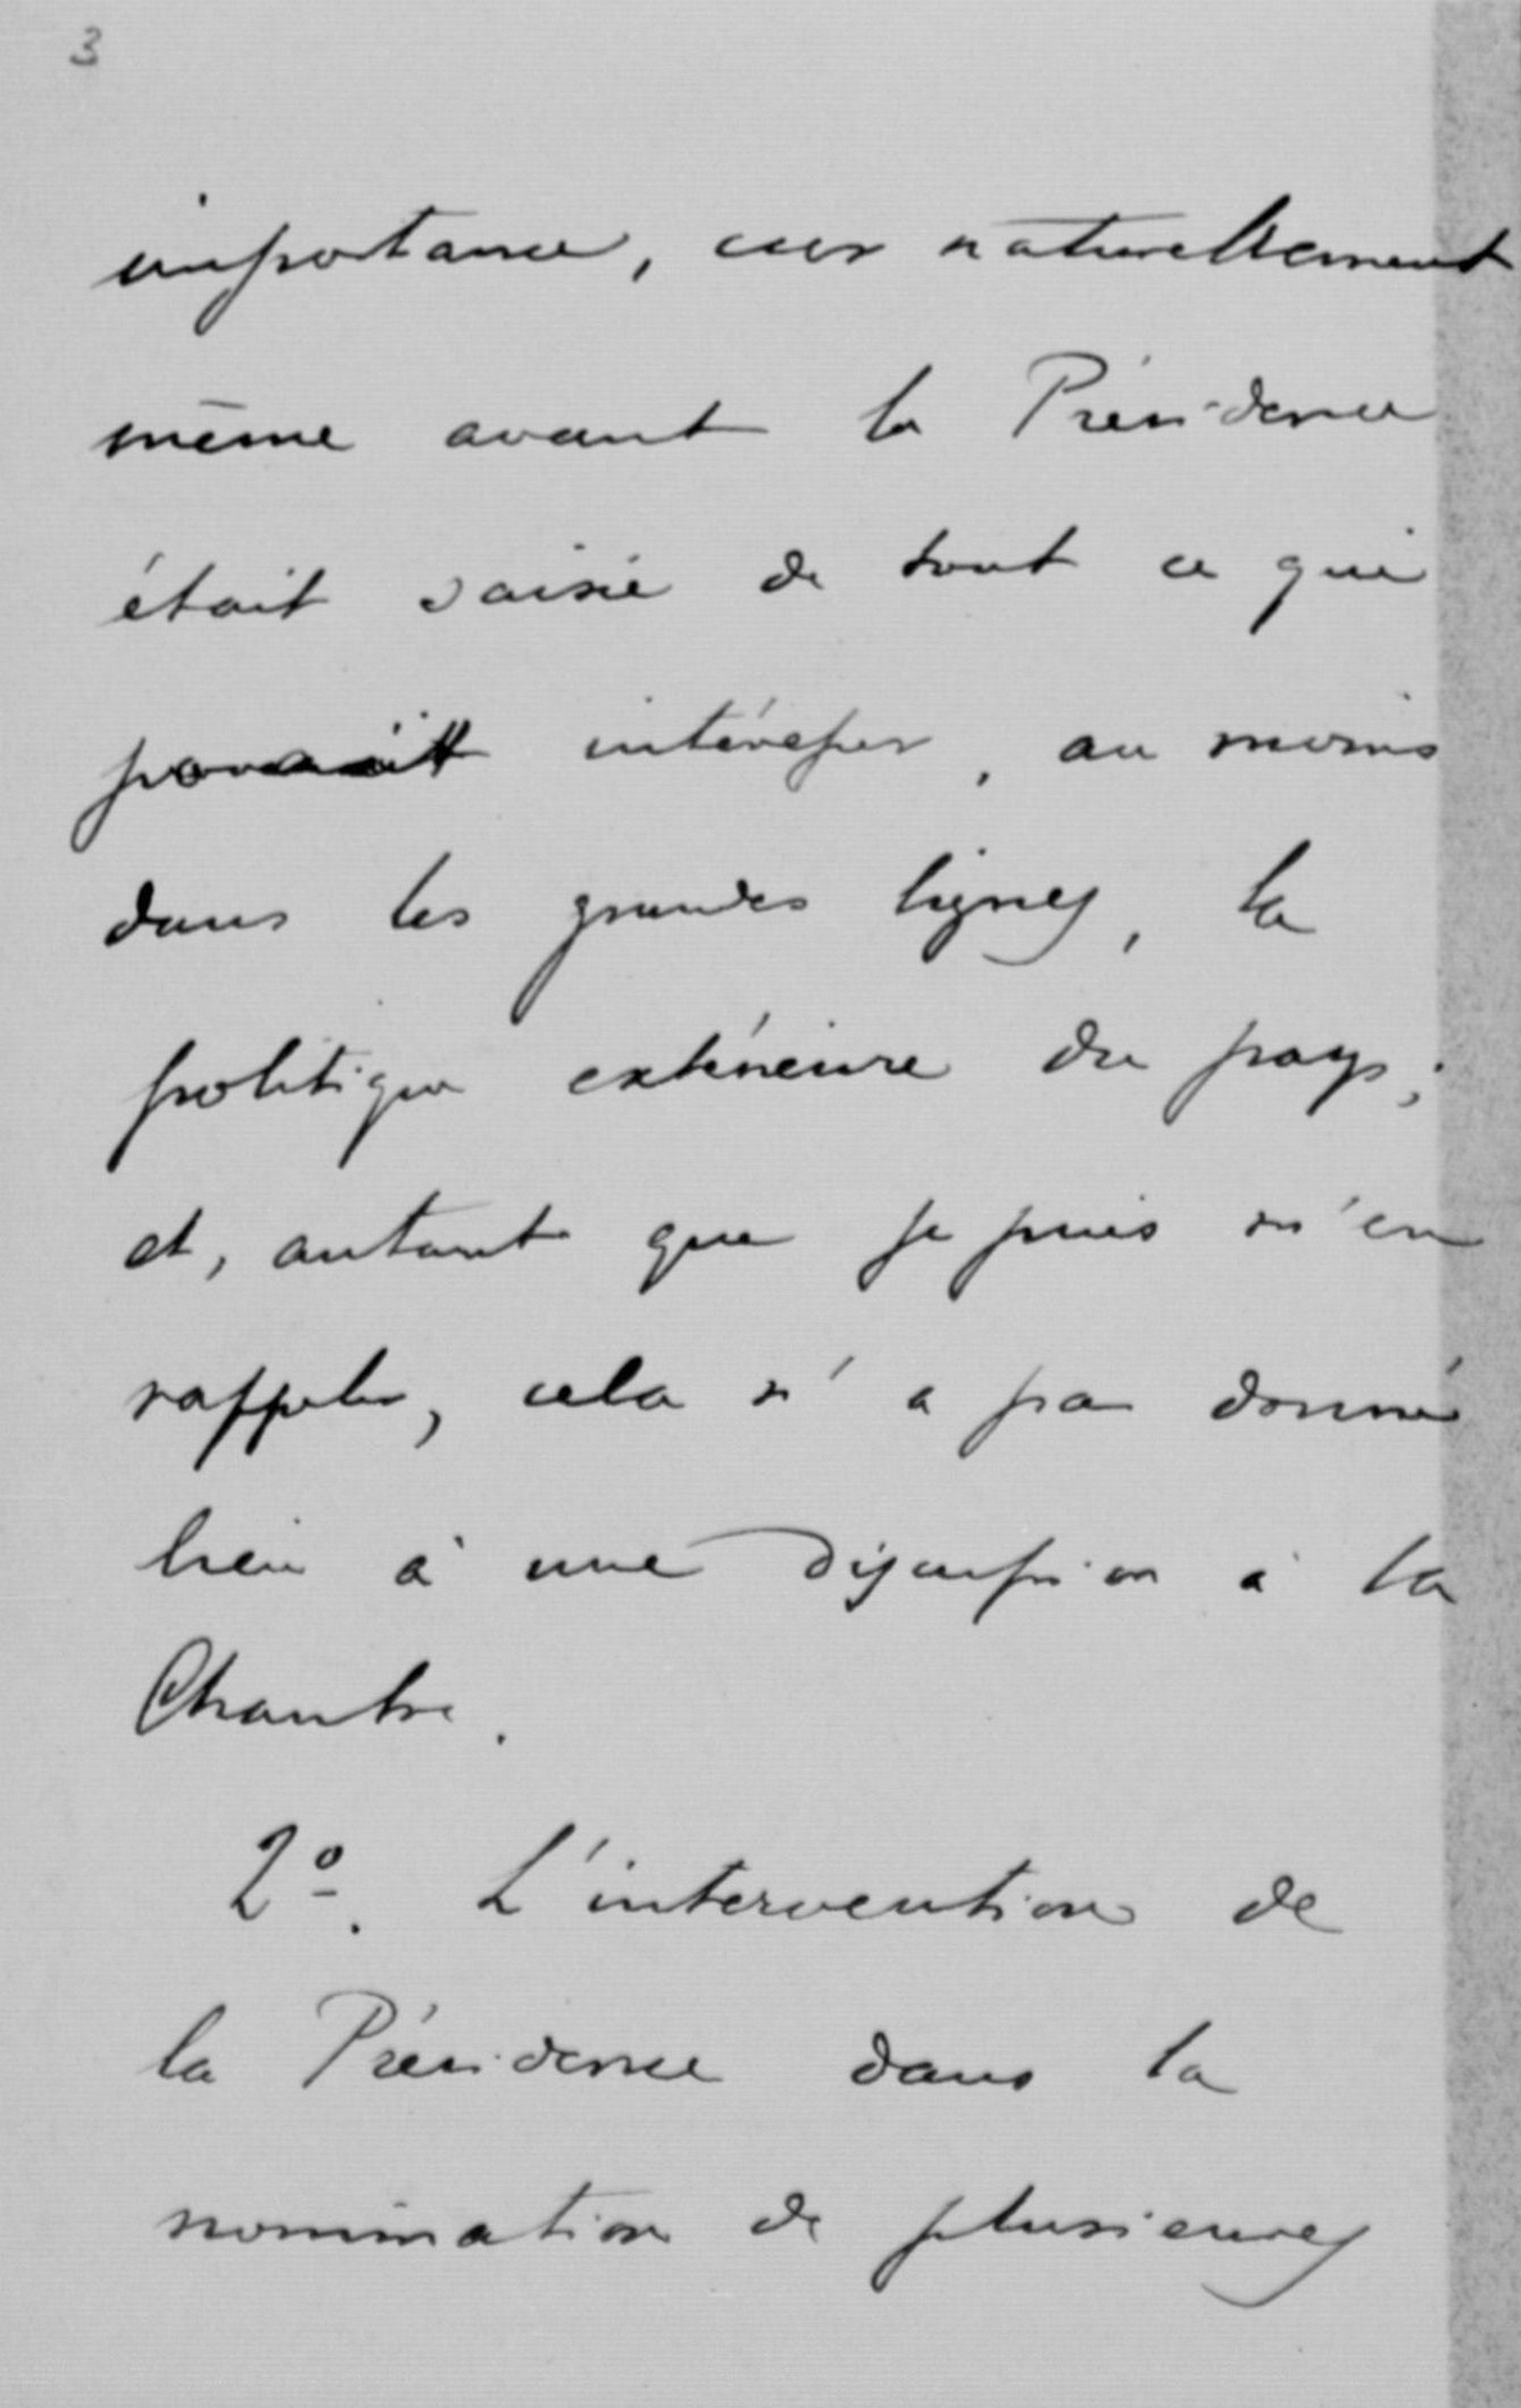 3
importance, car naturellement
même avant la Présidence
était saisie de tout ce qui
pouvait intéresser, au moins
dans les grandes lignes, la
politique extérieure du pays;
et, autant que je puis m'en
rappeler, cela n'a pas donné
lieu à une discussion à la
Chambre.
2º. L'intervention de
la Présidence dans la
nomination de plusieurs